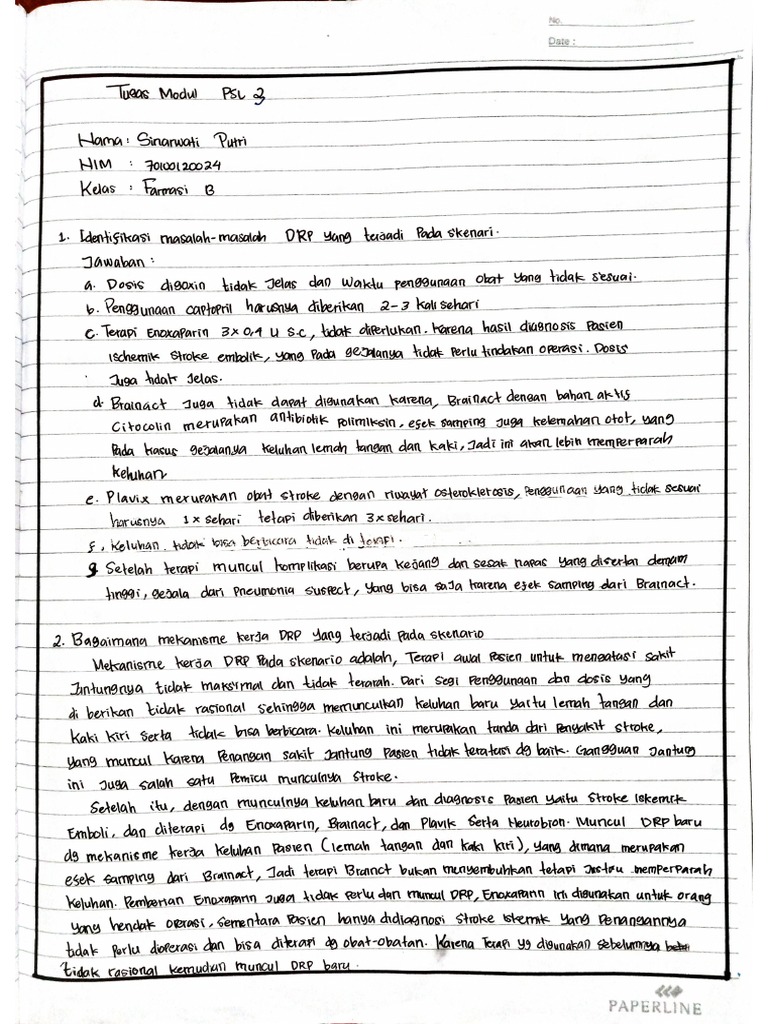 No.
Date :
Tugas Modul PSL 3
Nama : Sinarwati Putri
NIM : 70100120024
Kelas : Farmasi B
1. Identifikasi masalah-masalah DRP yang terjadi pada skenari.
Jawaban :
a. Dosis digoxin tidak jelas dan waktu penggunaan obat yang tidak sesuai.
b. Penggunaan captopril harusnya diberikan 2-3 kali sehari
c. Terapi Enoxaparin 3x0,4 U S.C, tidak diperlukan. karena hasil diagnosis pasien
Ischemik stroke embolik, yang pada gejalanya tidak perlu tindakan operasi. Dosis
Juga tidak jelas.
d. Brainact Juga tidak dapat digunakan karena, Brainact dengan bahan aktif
Citocolin merupakan antibiotik polimiksin, efek samping juga kelemahan otot, yang
pada kasus gejalanya keluhan lemah tangan dan kaki, Jadi ini akan lebih memperparah
keluhan
e. Plavix merupakan obat stroke dengan riwayat osteroklerosis, Penggunaan yang tidak sesuai
harusnya 1x sehari tetapi diberikan 3x sehari.
f. Keluhan tidak bisa berbicara tidak di terapi.
g. Setelah terapi muncul komplikasi berupa kejang dan sesak napas yang disertai demam
tinggi, gejala dari pneumonia suspect, yang bisa saja karena efek samping dari Brainact.
2. Bagaimana mekanisme kerja DRP yang terjadi pada skenario
Mekanisme kerja DRP pada skenario adalah, Terapi awal pasien untuk mengatasi sakit
Jantungnya tidak maksimal dan tidak terarah. Dari segi penggunaan dan dosis yang
di berikan tidak rasional sehingga memunculkan keluhan baru yaitu lemah tangan dan
kaki kiri serta tidak bisa berbicara. Keluhan ini merupakan tanda dari penyakit stroke,
yang muncul karena penangan sakit jantung pasien tidak teratasi dg baik. Gangguan Jantung
ini Juga salah satu pemicu munculnya stroke.
Setelah itu, dengan munculnya keluhan baru dan diagnosis pasien yaitu stroke Iskemik
Emboli, dan diterapi dg Enoxaparin, Brainact, dan Plavik serta Neurobion. Muncul DRP baru
dg mekanisme kerja keluhan pasien (lemah tangan dan kaki kiri), yang dimana merupakan
efek samping dari Brainact, Jadi terapi Branct bukan menyembuhkan tetapi Justru memperparah
keluhan. Pemberian Enoxaparin Juga tidak perlu dan muncul DRP, Enoxaparin ini digunakan untuk orang
yang hendak operasi, sementara pasien hanya didiagnosi stroke iskemik yang penangannya
tidak perlu dioperasi dan bisa diterapi dg obat-obatan. Karena Terapi yg digunakan sebelumnya
tidak rasional kemudian muncul DRP baru.
PAPERLINE